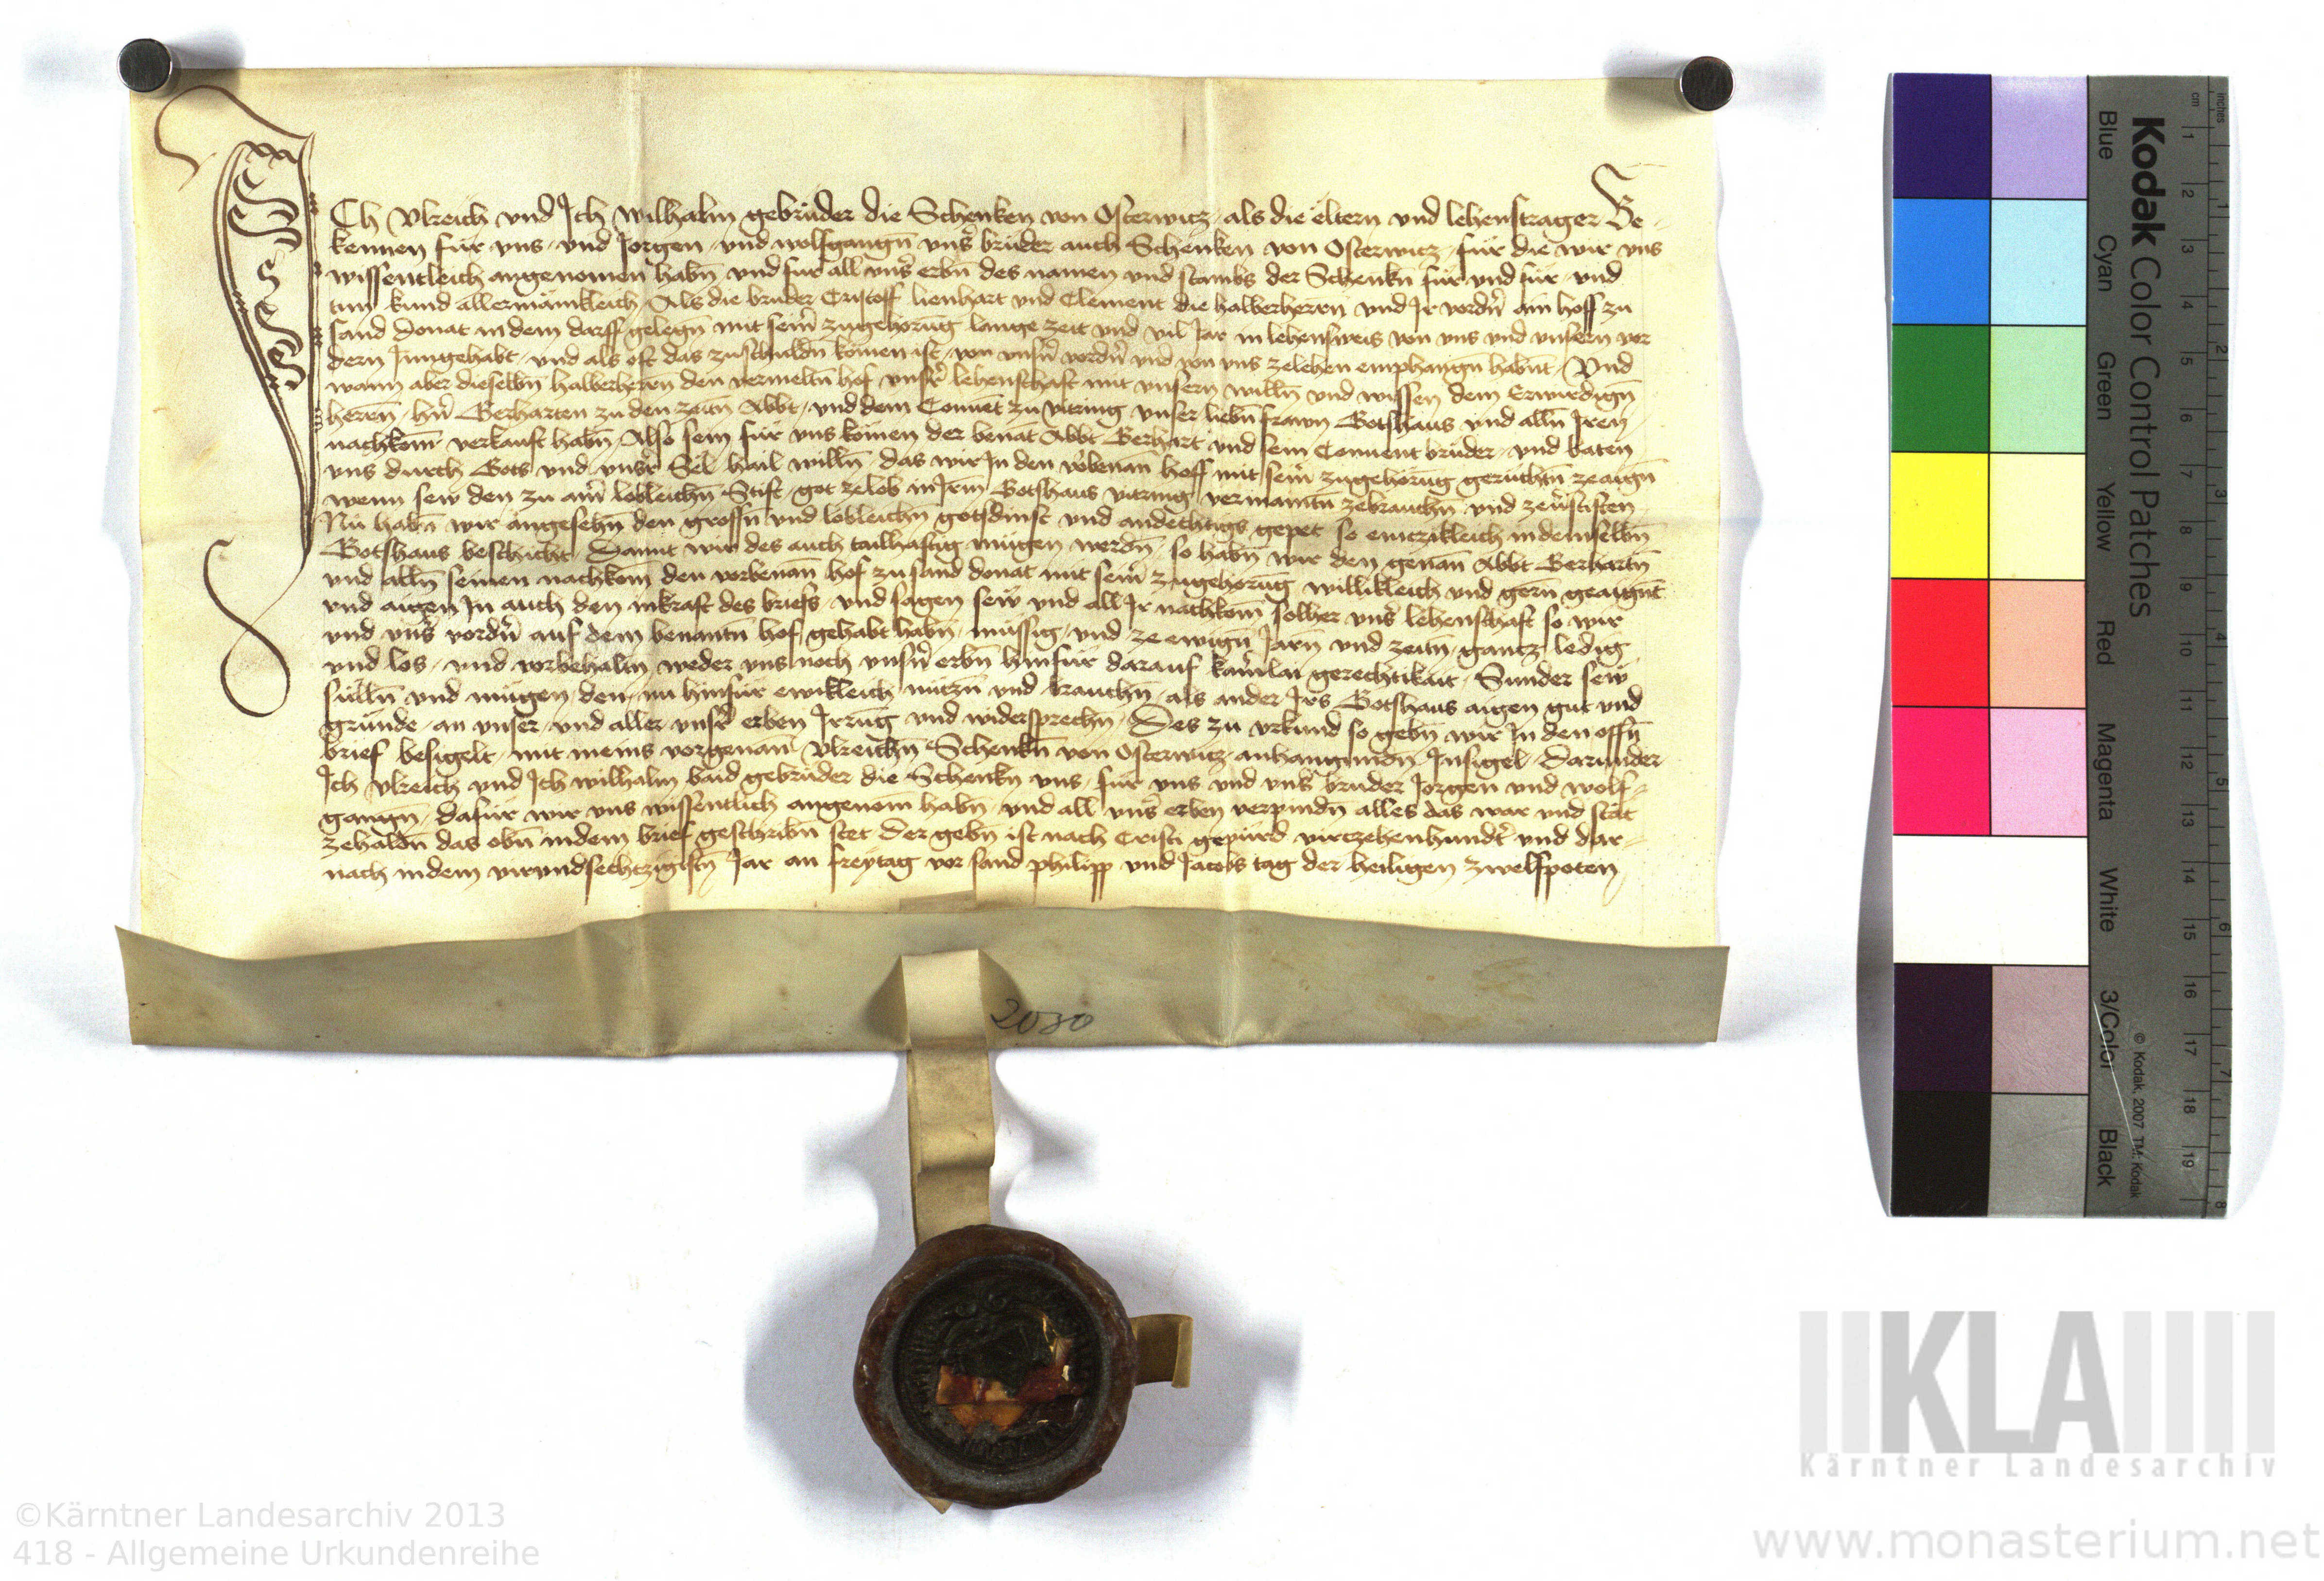 ICh Vlreich vnd Ich wilhalm gebrüder die Schenken von Osterwitz als die eltern vnd lehenstrager Be-
kennen für vns vnd Jorgen vnd wolfgangn̄ vnser brüder auch Schenken von Osterwitz für die wir vns
wissentleich angenomen habn̄ vnd für all vnser erbn̄ des namen vnd stambs der Schenkn̄ für vnd für vnd
tun kund allermänikleich Als die bruder Cristoff lienhart vnd Clement die halberherren vnd Ir vordn̄ ain hoff zu
sand Donat in dem dorff gelegn̄ mit seim̄ zugehorūg lange zeit vnd vil Jar in lehensweis von vns vnd vnsern vor
dern Inngehabt vnd als oft das zuschuldn̄ komen ist von vnsn̄ vordn̄ vnd von vns zelehen emphangn̄ habnt Vnd
wann aber dieselbn̄ halberherren den vermeltn̄ hof vnser lehenschaft mit vnsern willn̄ vnd wissen dem Erwirdign̄
herren hn̄ Gerharten zu den zeitn̄ Abbt vnd dem Conuēt zu vitring vnser liebn̄ frawn Gotshaus vnd alln̄ Iren
nachkom̄ verkauft habn̄ Also sein für vns komen der benāt Abbt Gerhart vnd sein Conuent brüder vnd baten
vns durch Gots vnd vnsr̄ Sel hail willn̄ das wir In den vorbenan̄ hoff mit seim̄ zugehorūg geruchtn̄ zeaign̄
wenn sew den zu aim̄ lobleichn̄ Stift got zelob in Irm̄ Gotshaus vitring vermaintn̄ zebrauchn̄ vnd zeuerstiften
Nu habn̄ wir angesehn̄ den grossn̄ vnd lobleichn̄ gotsdinst vnd andechtigs gepet so emczikleich in demselbn̄
Gotshaus beschicht Damit wir des auch tailhaftig mügen werdn̄ so habn̄ wir den genan̄ Abbt Gerhartn̄
vnd alln̄ seinen nachkom̄ den vorbenan̄ hof zu sand donat mit seim̄ zugehorūg willikleich vnd gern̄ geaignt
vnd aigen In auch den in kraft des briefs vnd sagen sew vnd all Ir nachkom̄ solher vnser lehenschaft so wir
vnd vnser vordn̄ auf dem benantn̄ hof gehabt habn̄ müssig vnd ze ewign̄ Jarn̄ vnd zeitn̄ gantz ledig
vnd los vnd vorbehaltn̄ weder vns noch vnsn̄ erbn̄ hinfür darauf kainerlai gerechtikait Sunder sew
sülln̄ vnd mügen den nu hinfür ewikleich nützn̄ vnd brauchn̄ als ander Irs Gotshaus aigen gut vnd
gründe an vnser vnd aller vnsr̄ erben Irrūg vnd widersprechn̄ Des zu vrkund so gebn̄ wir In den offn̄
brief besigelt mit meins vorgenan̄ Vlreichn̄ Schenkn̄ von Osterwitz anhangundn̄ Insigel Darunder
Ich Vlreich vnd Ich wilhalm baid gebrüder die Schenkn̄ vns für vns vnd vnser bruder Jorgen vnd wolf-
gangn̄ dafür wir vns wissentlich angenom̄ habn̄ vnd all vnser erben verpindn̄ alles das war vnd stät
zehaldn̄ das obn̄ in dem brief geschribn̄ stet Der gebn̄ ist nach Cristi gepurd virzehenhundert vnd dar-
nach in dem virvndsechtzigistn̄ Jar an freytag vor sand philipp vnd Jacobs tag der heiligen zwelfpoten
2030
Kodak Color Control Patches
Blue Cyan Green Yellow Red Magenta White 3/Color Black
© Kodak, 2007 TM: Kodak
inches 1 2 3 4 5 6 7 8
cm 1 2 3 4 5 6 7 8 9 10 11 12 13 14 15 16 17 18 19
KLA
Kärntner Landesarchiv
©Kärntner Landesarchiv 2013
418 - Allgemeine Urkundenreihe
www.monasterium.net